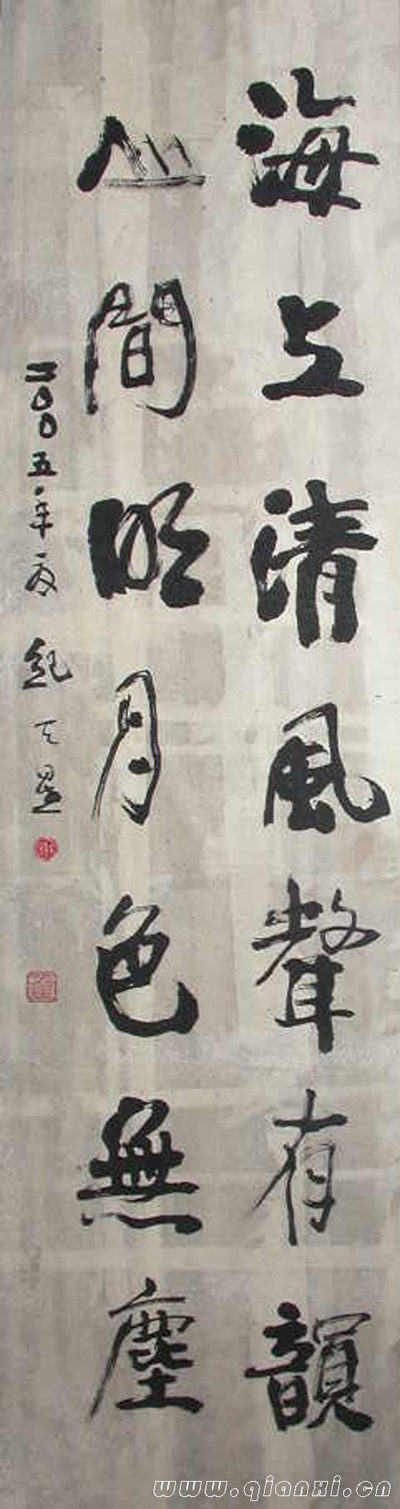 海上清風聲有韻
山間明月色無塵
二〇〇五年夜 紀天墨
www.qianxi.cn